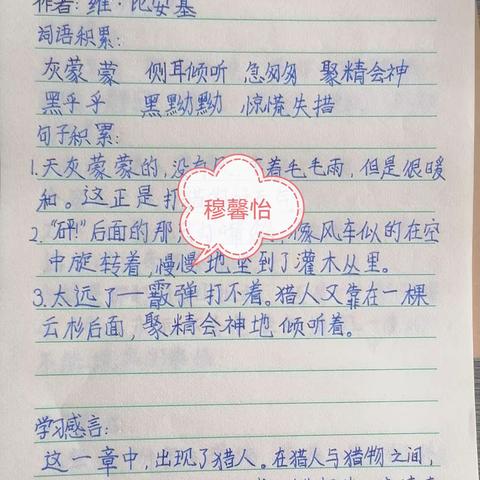 作者：维·比安基
词语积累：
灰蒙蒙 侧耳倾听 急匆匆 聚精会神
黑乎乎 黑黝黝 惊慌失措
句子积累：
1.天灰蒙蒙的，没有 着毛毛雨，但是很暖
和。这正是打
穆馨怡
2.“砰!”后面的那 像风车似的在空
中旋转着，慢慢地坠到了灌木丛里。
3.太远了——霰弹打不着。猎人又靠在一棵
云杉后面，聚精会神地倾听着。
学习感言：
这一章中，出现了猎人。在猎人与猎物之间，